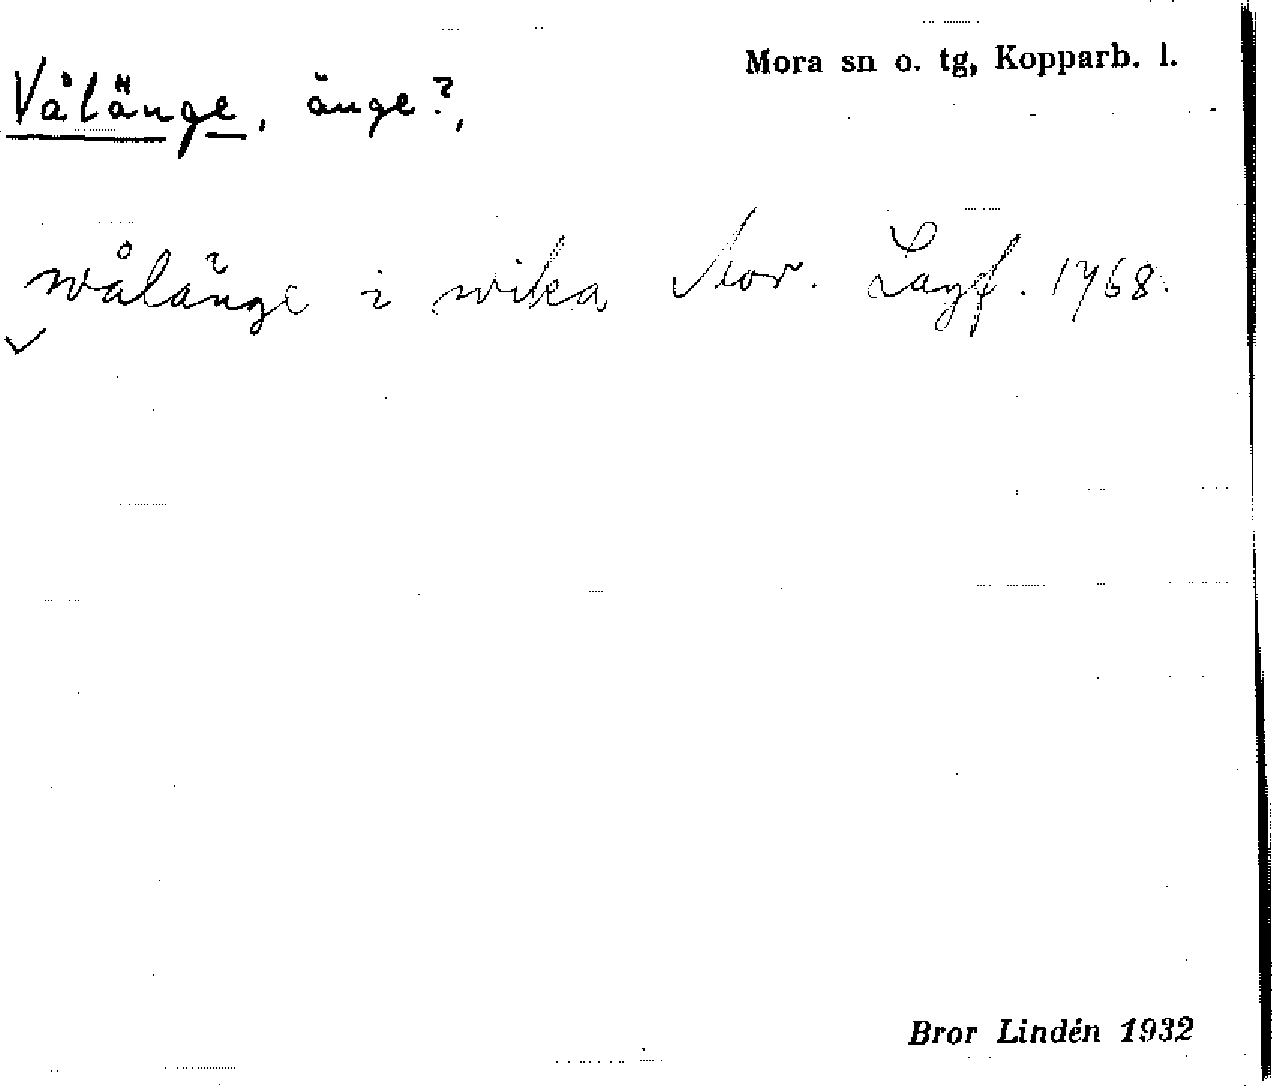 Mora sn o. tg, Kopparb. l.
Vålänge, änge?,
wålänge i wika Mor. Lagf. 1768.
Bror Lindén 1932